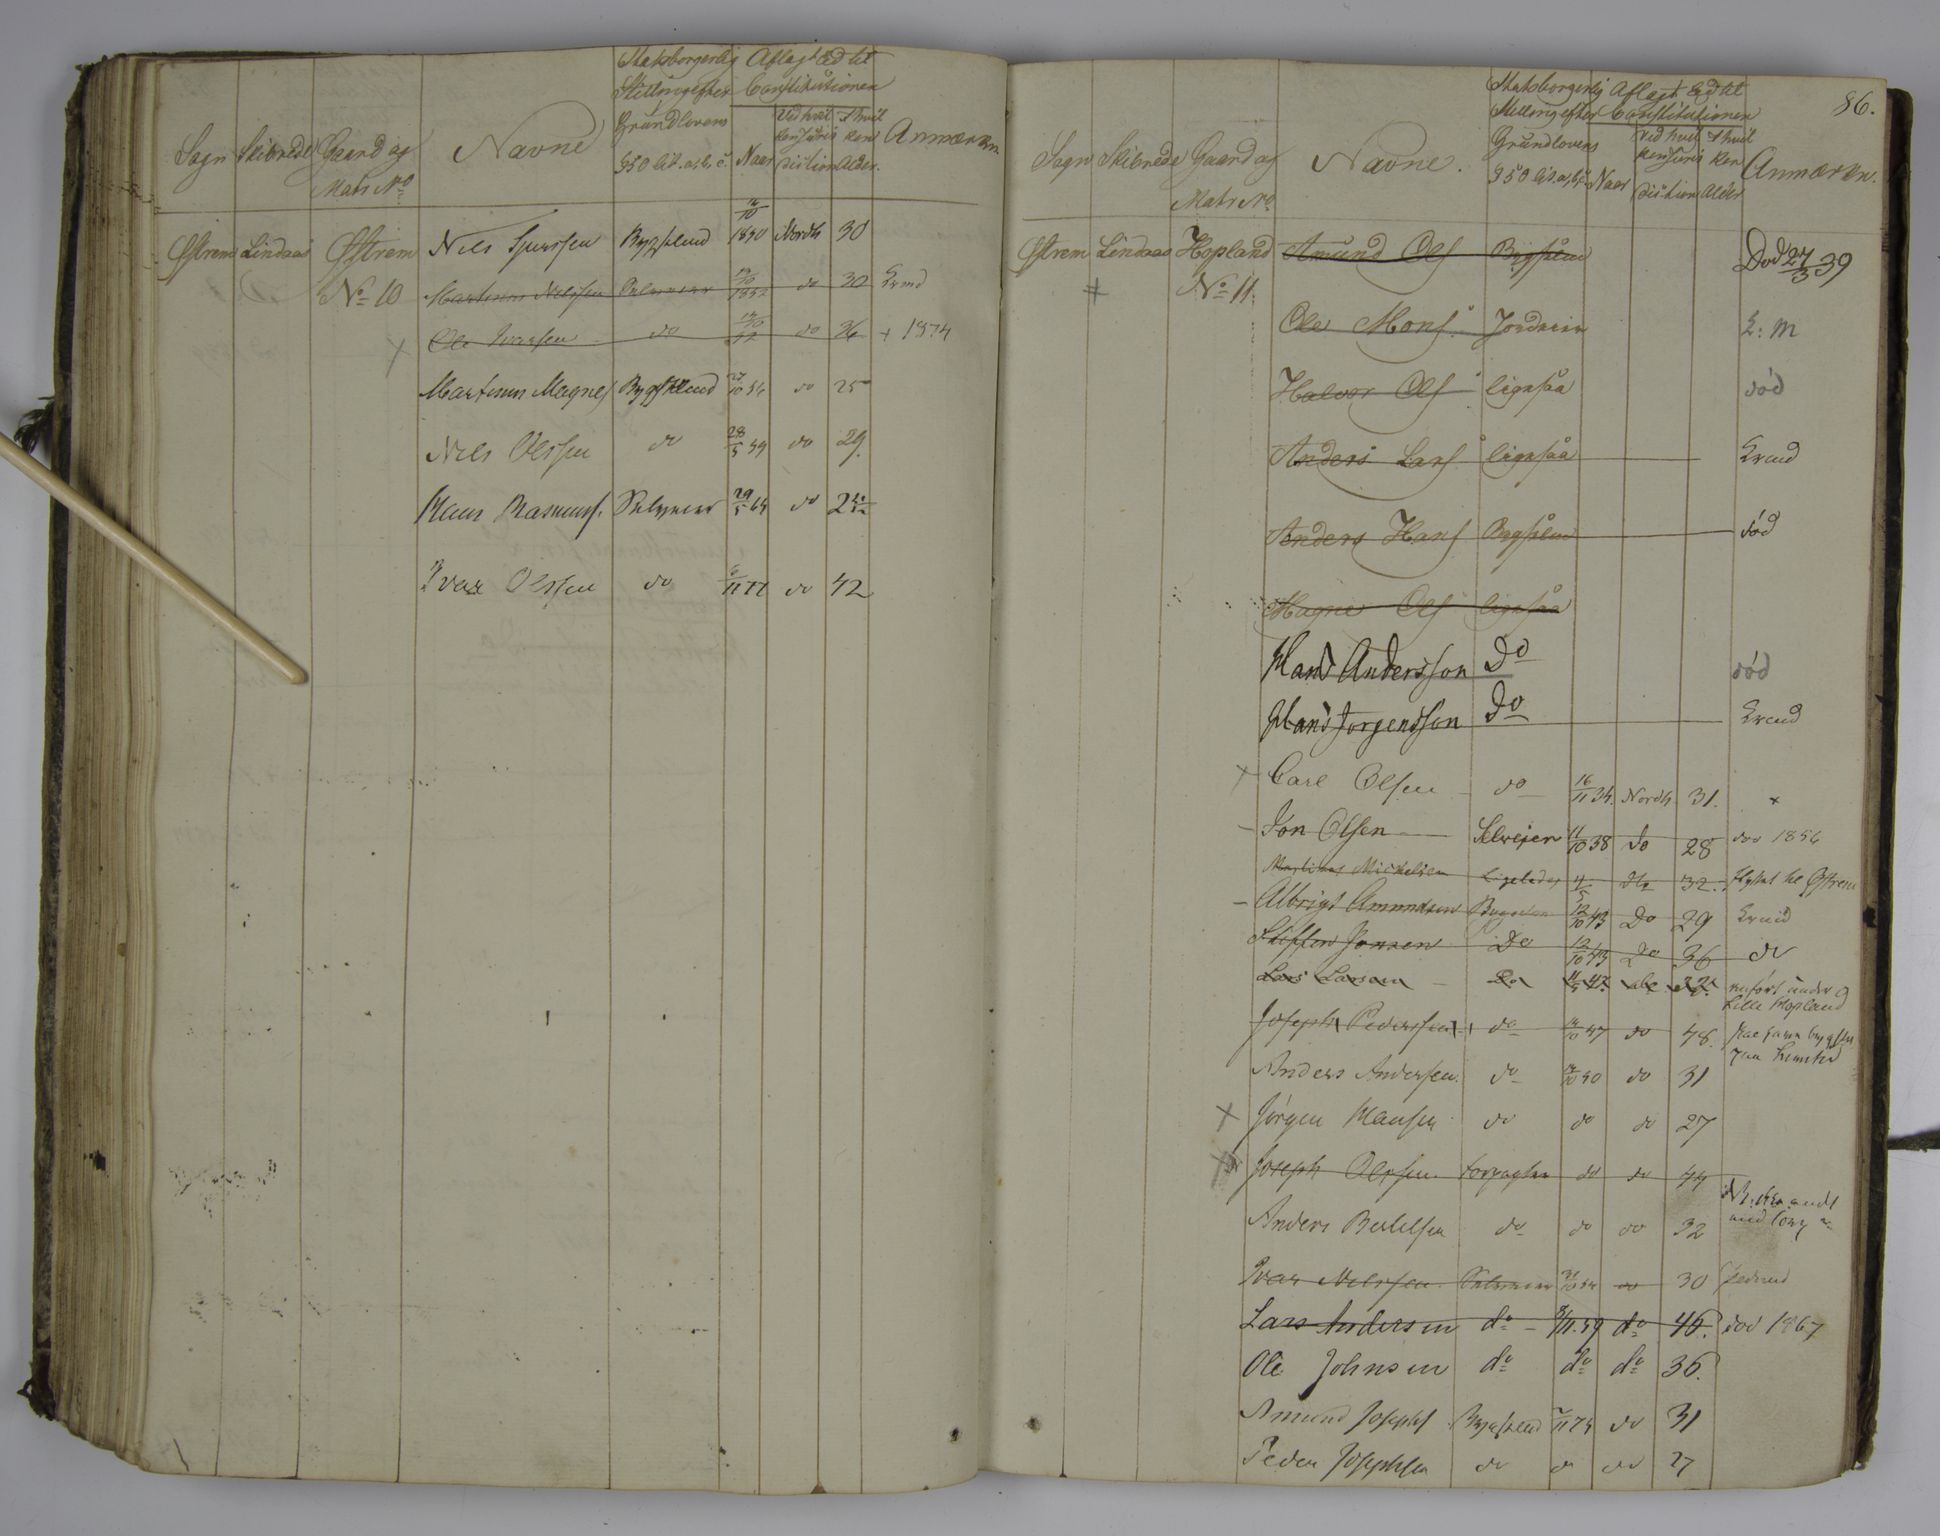 Sogn Skibrede Gaard og Matr No Navne Statsborgerlig Stilling efter Grundlovens § 50 Lit. a, b, c. Aflagt Ed til Constitutionen Naar Ved hvilken Jurisdiction I hvilken Alder. Anmærkn
Østrem Lindaas Østrem Nils Bygselmd 14/10 1850 Nordh 30
No 10 Martinus Nilssen Selveier do 30
Ole Ivarsen do do 36 + 1874
Martinus Magnes Bygselmd 27/10 54 do 25
Nils Olssen do 28/5 59 do 29.
Hans Rasmuss. Selveier 29/5 64 do
Ivar Olssen do 6/11 77 do 42
86.
Sogn Skibrede Gaard og Matr No Navne. Statsborgerlig Stilling efter Grundlovens § 50 Lit. a, b, c. Naar Aflagt Ed til Constitutionen Ved hvilken Jurisdiction I hvilken Alder Anmærkn.
Østrem Lindaas Hopland Amund Ols Bygselm Død 27/3 39
No 11. Ole Mons Jordeier
Halvor Ols ligesaa død
Anders Lars ligesaa
Anders Hans Bygselm død
Magne Ols ligesaa
Hans Andersson Do død
Hans Jorgensson Do
Carl Olsen do 16/11 34. Nordh 31. +
Jon Olsen Selveier 11/10 38 do 28 død 1856
Martinus Mickelsen Ligeledes 32. flyttet til Østrem
Albrigt Amundsen 12/10 43 Do 29
Steffen Jonsen Do 12/10 43 Do 36 do
Lars Larsen Do anført under Lille Hopland
Joseph Pederssen do 14/10 47 do 48.
Anders Andersen. do 14/10 50 do 31
Jørgen Hansen do do do 27
Joseph Olssen. Forpagter do do 44
Anders Bertelsen do do do 32
Ivar Nilssen. Selveier do 30
Lars Andersen do 8/11. 59 do 46. død 1867
Ole Johnsen do do do 36.
Amund Josephs Bygselmd 7/11 74 do 31
Peder Josephsen do do do 27